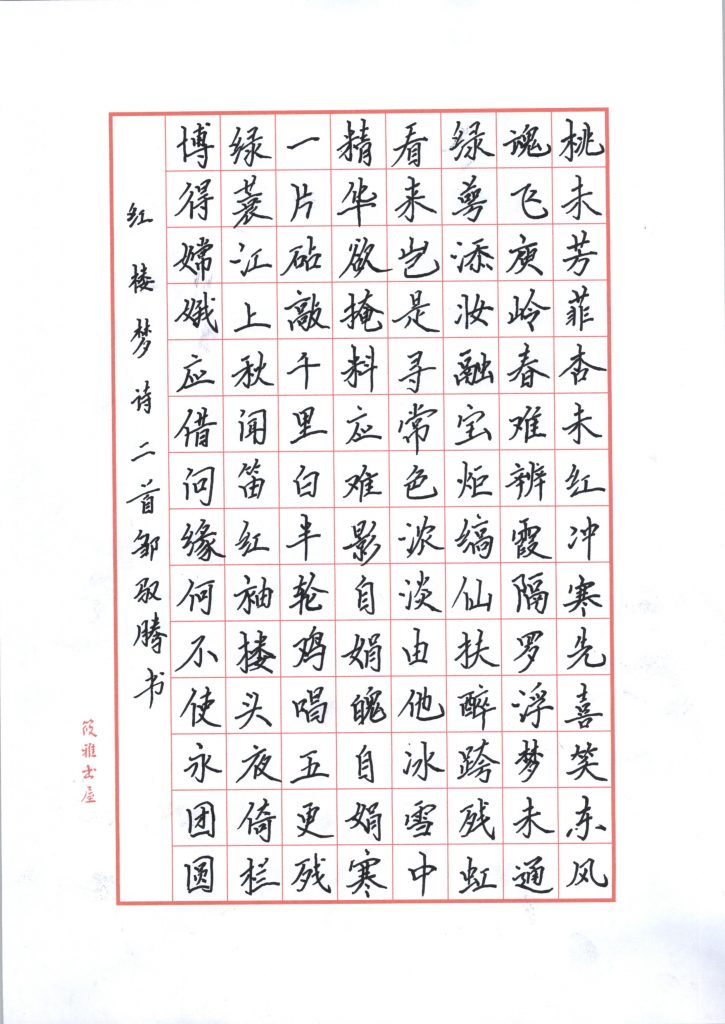 桃未芳菲杏未红冲寒先喜笑东风
魂飞庾岭春难辨霞隔罗浮梦未通
绿萼添妆融宝炬缟仙扶醉跨残虹
看来岂是寻常色浓淡由他冰雪中
精华欲掩料应难影自娟魄自娟寒
一片砧敲千里白半轮鸡唱五更残
绿蓑江上秋闻笛红袖楼头夜倚栏
博得嫦娥应借问缘何不使永团圆
红楼梦诗二首邹驭腾书
筱雅书屋